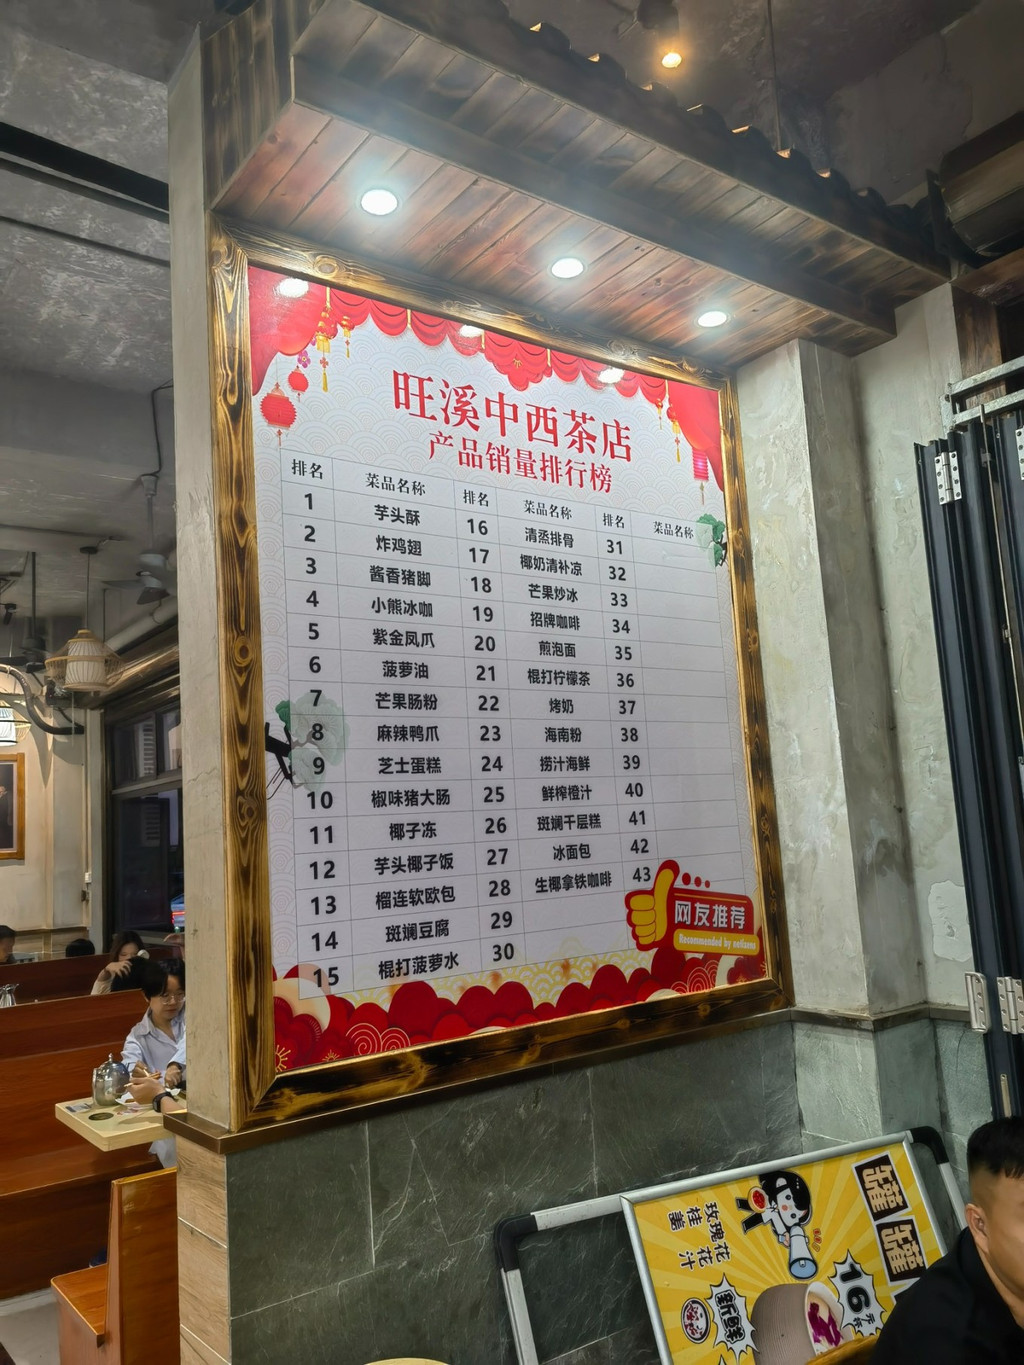 旺溪中西茶店
产品销量排行榜
排名 菜品名称 排名 菜品名称 排名 菜品名称
1 芋头酥 16 清蒸排骨 31
2 炸鸡翅 17 椰奶清补凉 32
3 酱香猪脚 18 芒果炒冰 33
4 小熊冰咖 19 招牌咖啡 34
5 紫金凤爪 20 煎泡面 35
6 菠萝油 21 棍打柠檬茶 36
7 芒果肠粉 22 烤奶 37
8 麻辣鸭爪 23 海南粉 38
9 芝士蛋糕 24 捞汁海鲜 39
10 椒味猪大肠 25 鲜榨橙汁 40
11 椰子冻 26 斑斓千层糕 41
12 芋头椰子饭 27 冰面包 42
13 榴连软欧包 28 生椰拿铁咖啡 43
14 斑斓豆腐 29
15 棍打菠萝水 30
网友推荐
Recommended by netizens
罐罐
玫瑰花
新鲜
16
元/杯